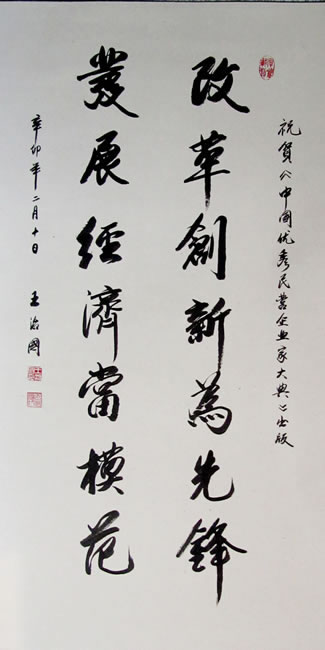 祝贺《中国优秀民营企业家大典》出版
改革創新為先鋒
發展經濟當模范
辛卯年二月十日
王治國